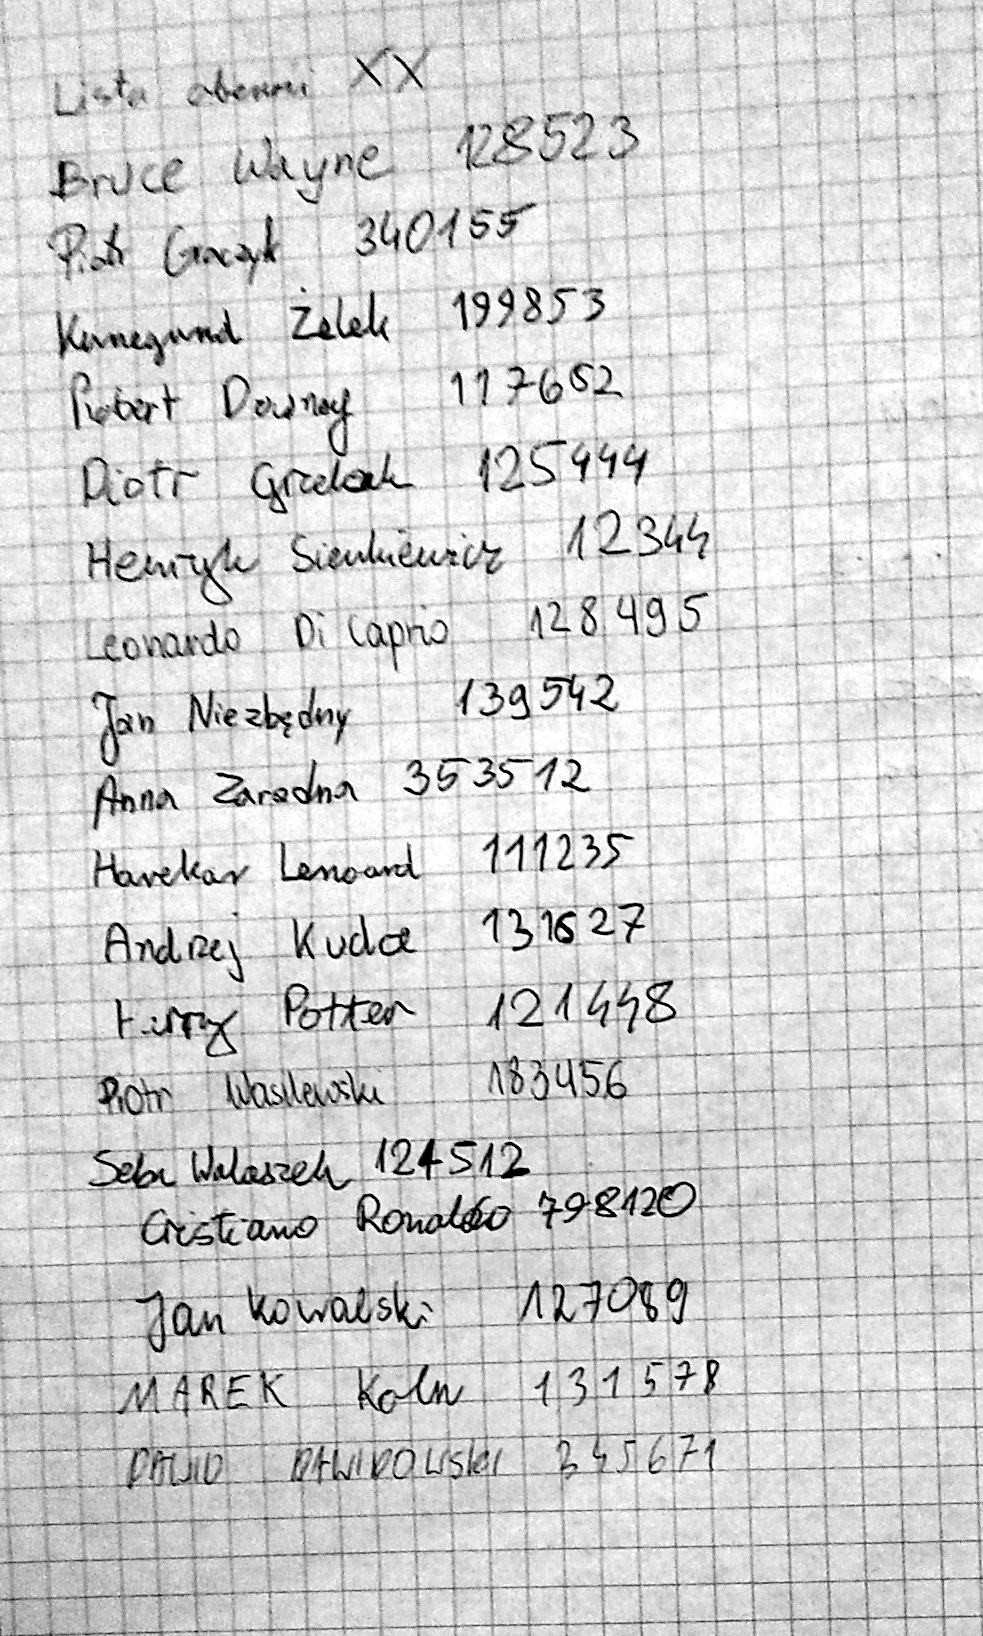 Lista obecności XX
Bruce Wayne 128523
Piotr Graczyk 340155
Kunegund Żelek 199853
Robert Downey 117652
Piotr Grzelak 125444
Henryk Sienkiewicz 12344
Leonardo Di Caprio 128495
Jan Niezbędny 139542
Anna Zaradna 353512
Harekar Lenoard 111235
Andrzej Kudca 131627
Harry Potter 121448
Piotr Wasilewski 183456
Seba Walaszek 124512
Cristiano Ronaldo 798120
Jan Kowalski 127089
MAREK Koln 131578
DAWID DAWIDOWSKI 345671